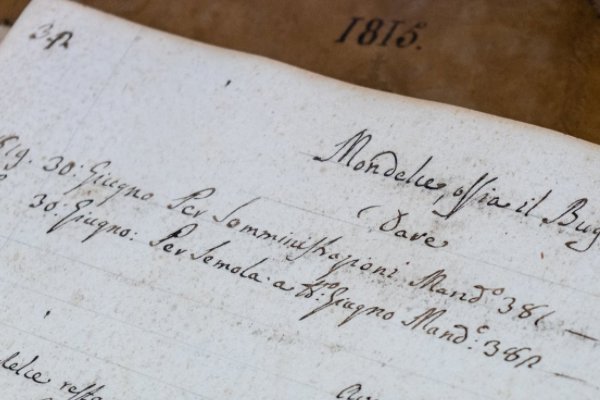 1815.
Mondelce, ossia il Bug
Dare
30: Giugno Per Somministrazioni Mand.º 381 —
30. Giugno: Per Semola a tt.º Giugno Mand.º: 382 —
delce resta